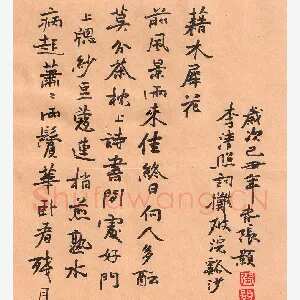 病起蕭々兩鬢華卧看殘月
上牕紗豆蔻連梢煎熟水
莫分茶枕上詩書閒處好門
前風景雨來佳終日向人多醞
藉木犀花
李清照詞攤破浣溪沙
歲次己丑年
Shufawang.CN